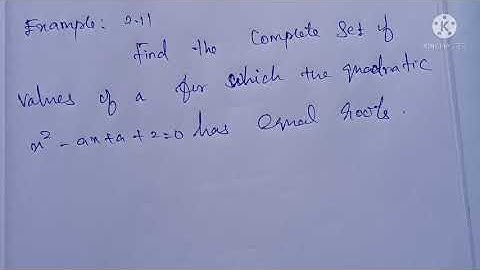 Example: 2.11
Find the Complete Set of
values of a for which the quadratic
x² - ax + a + 2 = 0 has equal roots.